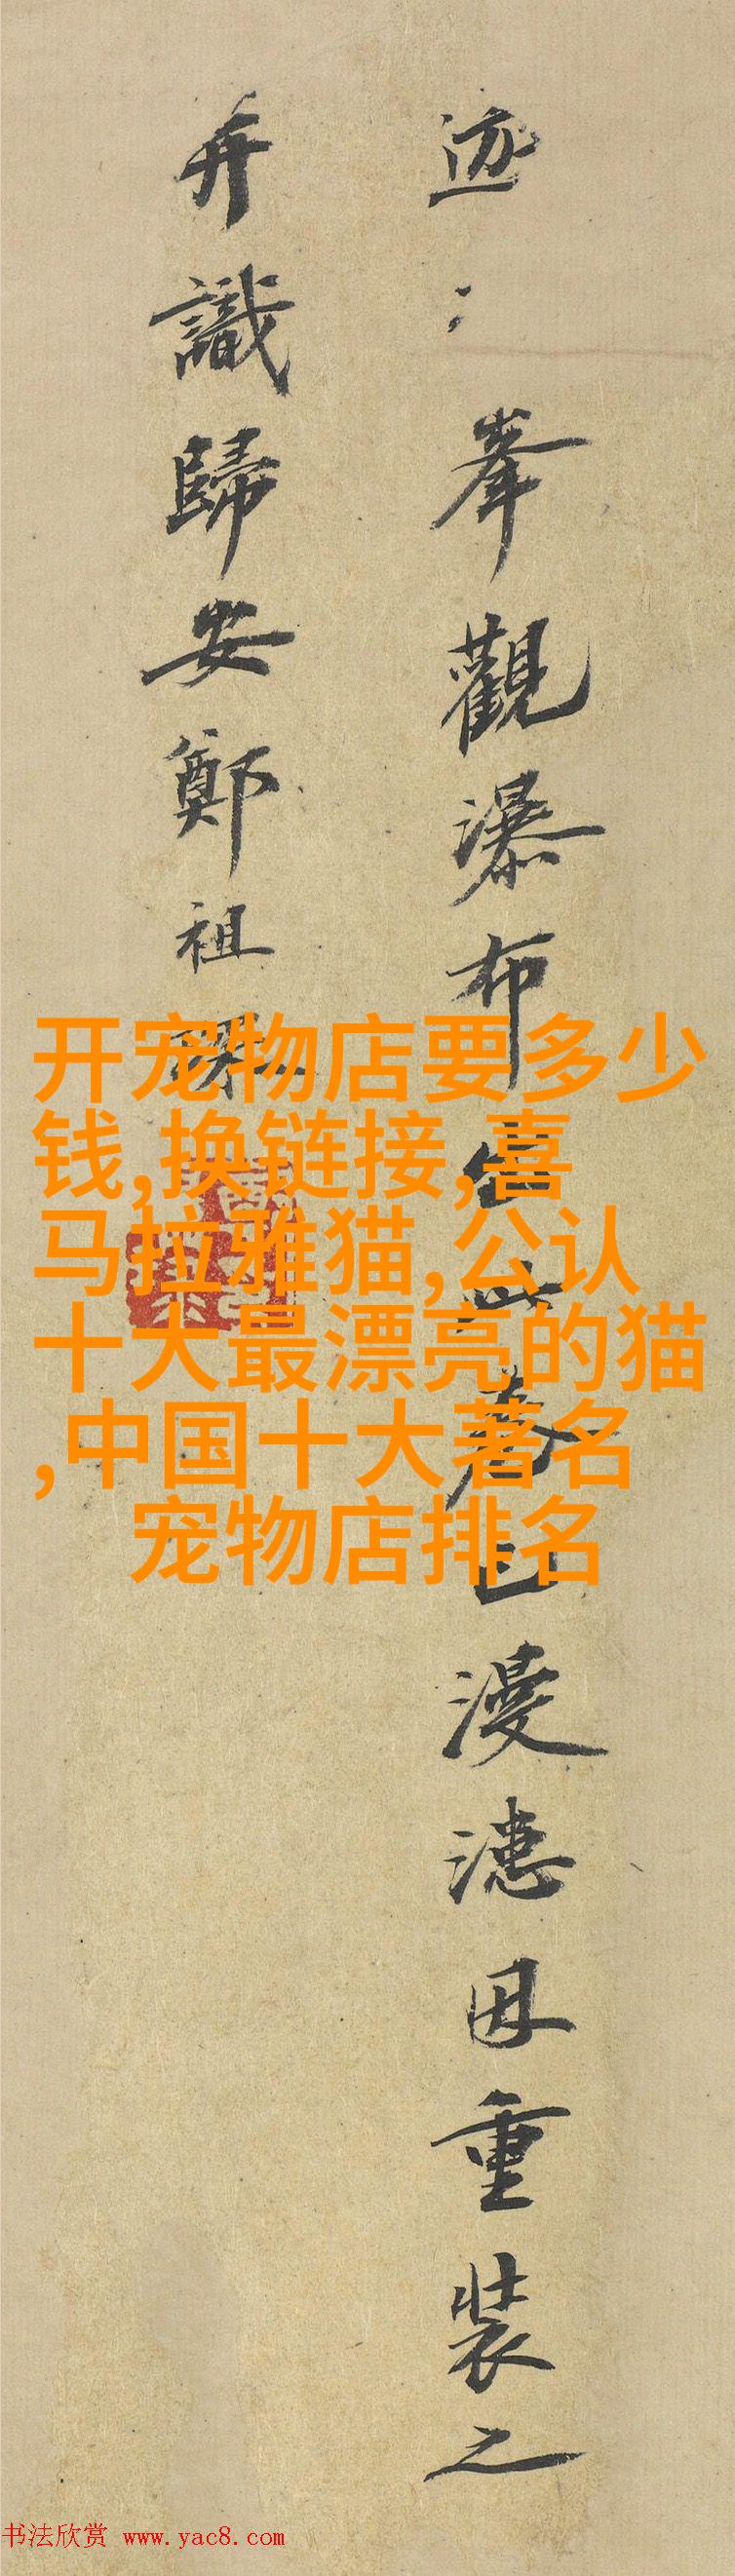 迹〻峯觀瀑布
漫漶因重裝之
弁識歸安鄭祖琛
开宠物店要多少
钱,换链接,喜
马拉雅猫,公认
十大最漂亮的猫
,中国十大著名
宠物店排名
书法欣赏 www.yac8.com